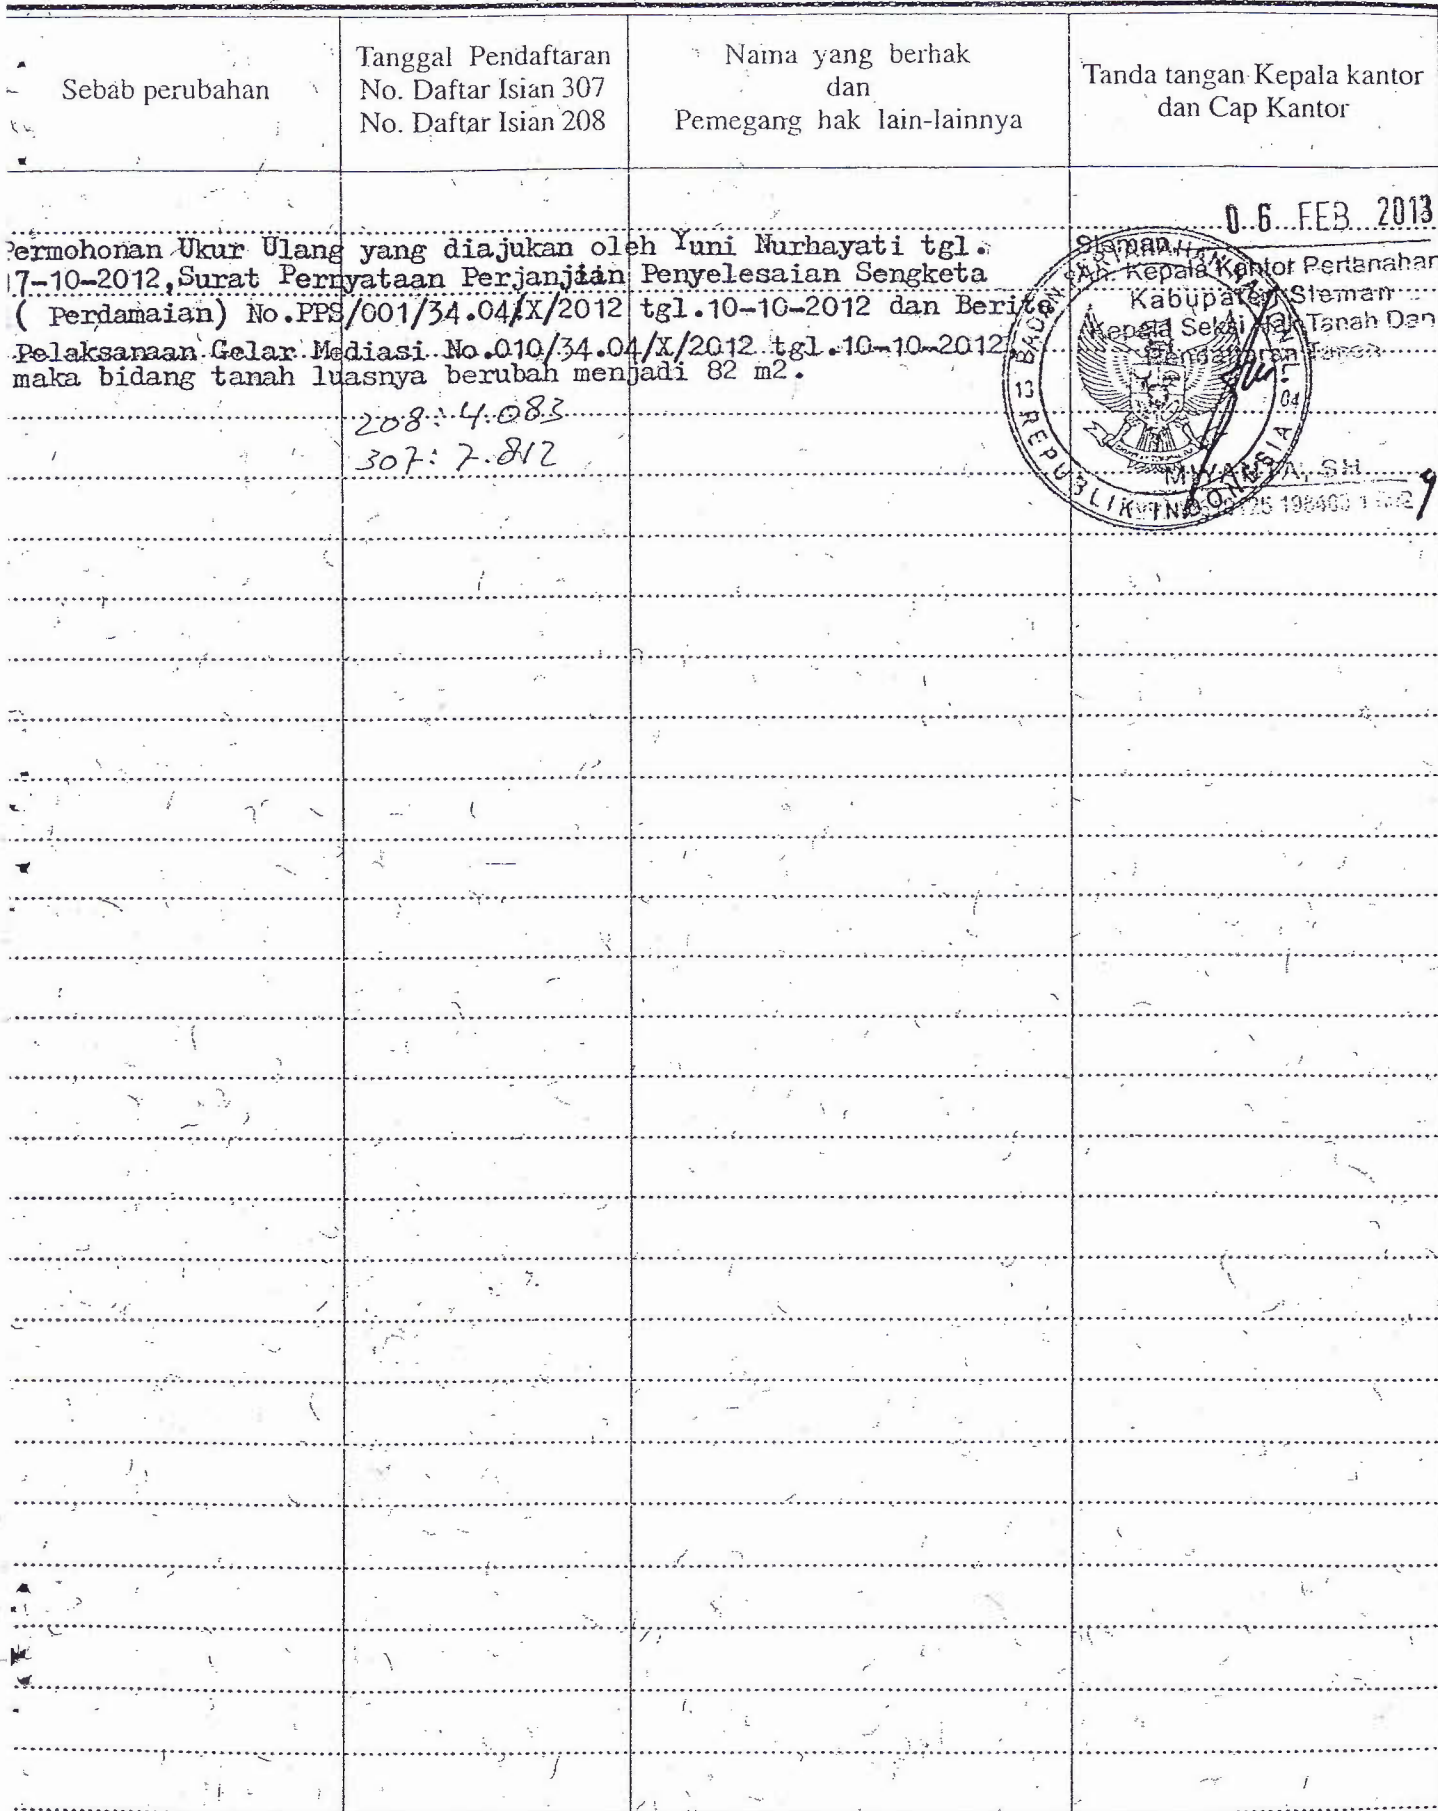 Sebab perubahan
Tanggal Pendaftaran
No. Daftar Isian 307
No. Daftar Isian 208
Nama yang berhak
dan
Pemegang hak lain-lainnya
Tanda tangan Kepala kantor
dan Cap Kantor
06 FEB 2013
Permohonan Ukur Ulang yang diajukan oleh Yuni Nurhayati tgl.
17-10-2012, Surat Pernyataan Perjanjian Penyelesaian Sengketa
( Perdamaian) No.PPS/001/34.04/X/2012 tgl.10-10-2012 dan Berita
Pelaksanaan Gelar Mediasi No.010/34.04/X/2012 tgl.10-10-2012,
maka bidang tanah luasnya berubah menjadi 82 m2.
208: 4.083
307: 7.812
Sleman,
An. Kepala Kantor Pertanahan
Kabupaten Sleman
Kepala Seksi Hak Tanah Dan
Pendaftaran Tanah
SH
BADAN PERTANAHAN NASIONAL
13 REPUBLIK INDONESIA 04